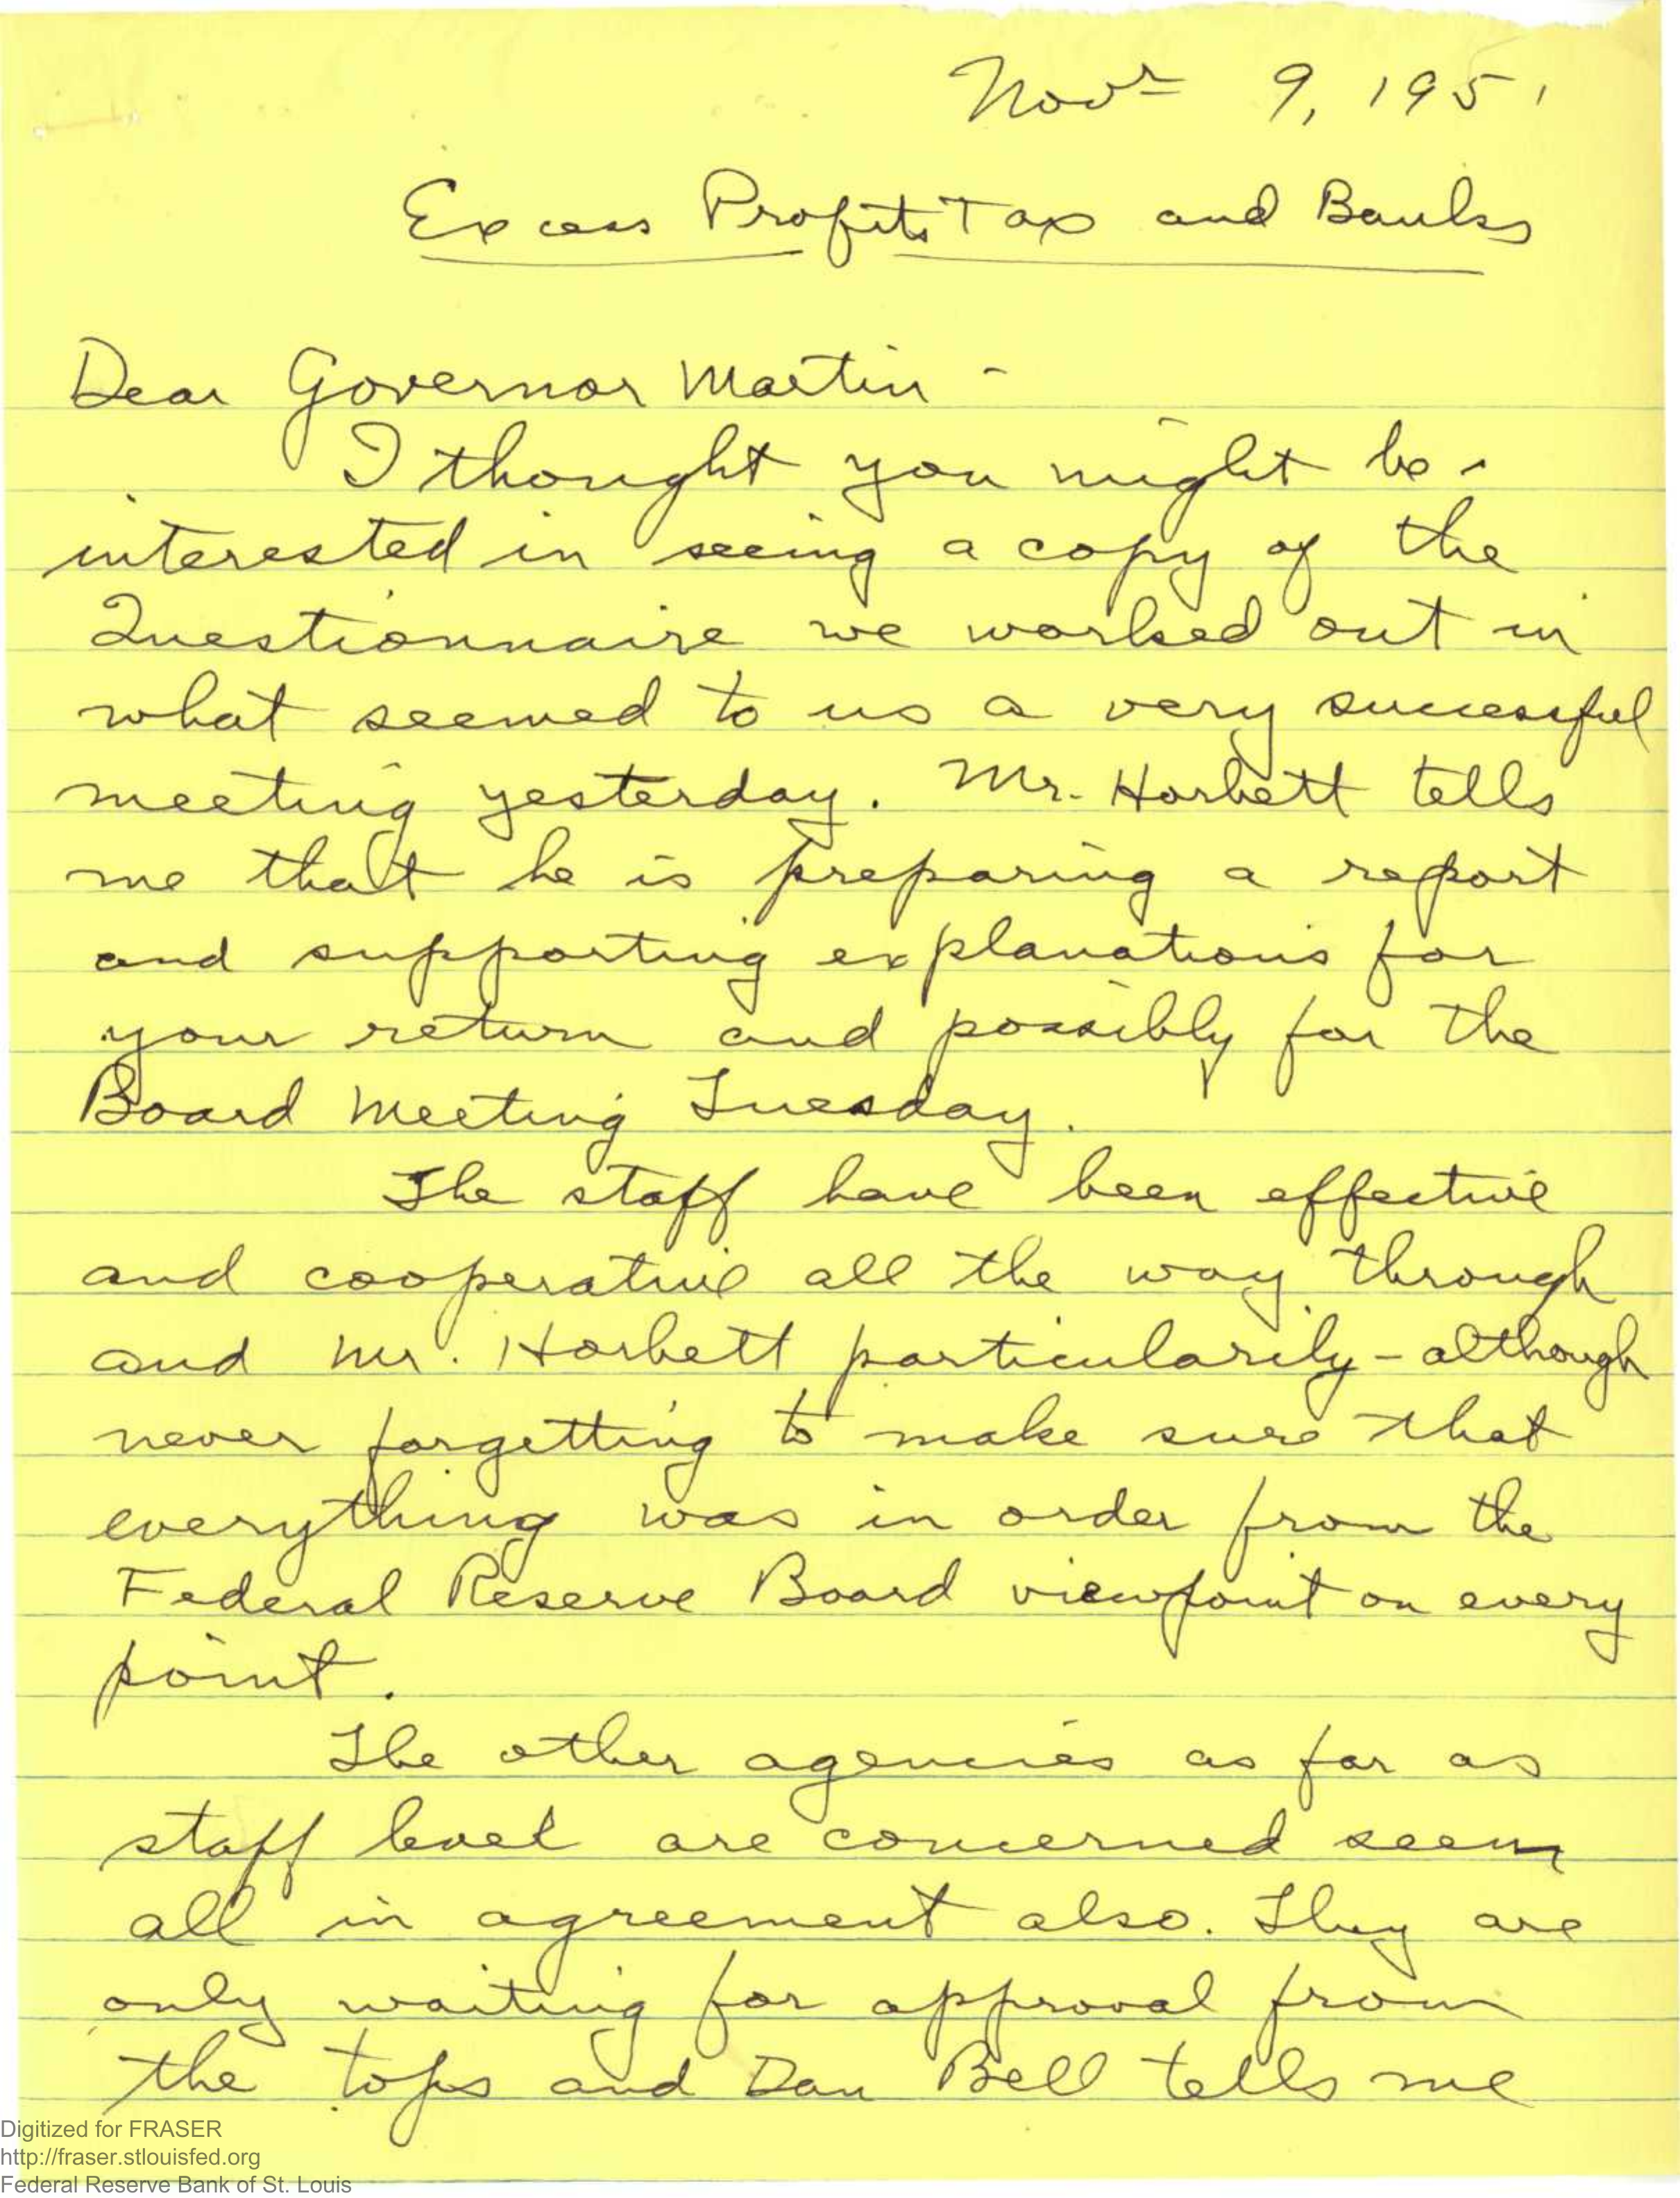 Novr 9, 1951
Excess Profits Tax and Banks
Dear Governor Martin -
I thought you might be
interested in seeing a copy of the
Questionnaire we worked out in
what seemed to us a very successful
meeting yesterday. Mr. Horbett tells
me that he is preparing a report
and supporting explanations for
your return and possibly for the
Board Meeting Tuesday.
The staff have been effective
and cooperative all the way through
and Mr. Horbett particularily - although
never forgetting to make sure that
everything was in order from the
Federal Reserve Board viewpoint on every
point.
The other agencies as far as
staff level are concerned seem
all in agreement also. They are
only waiting for approval from
the tops and Dan Bell tells me
Digitized for FRASER
http://fraser.stlouisfed.org
Federal Reserve Bank of St. Louis